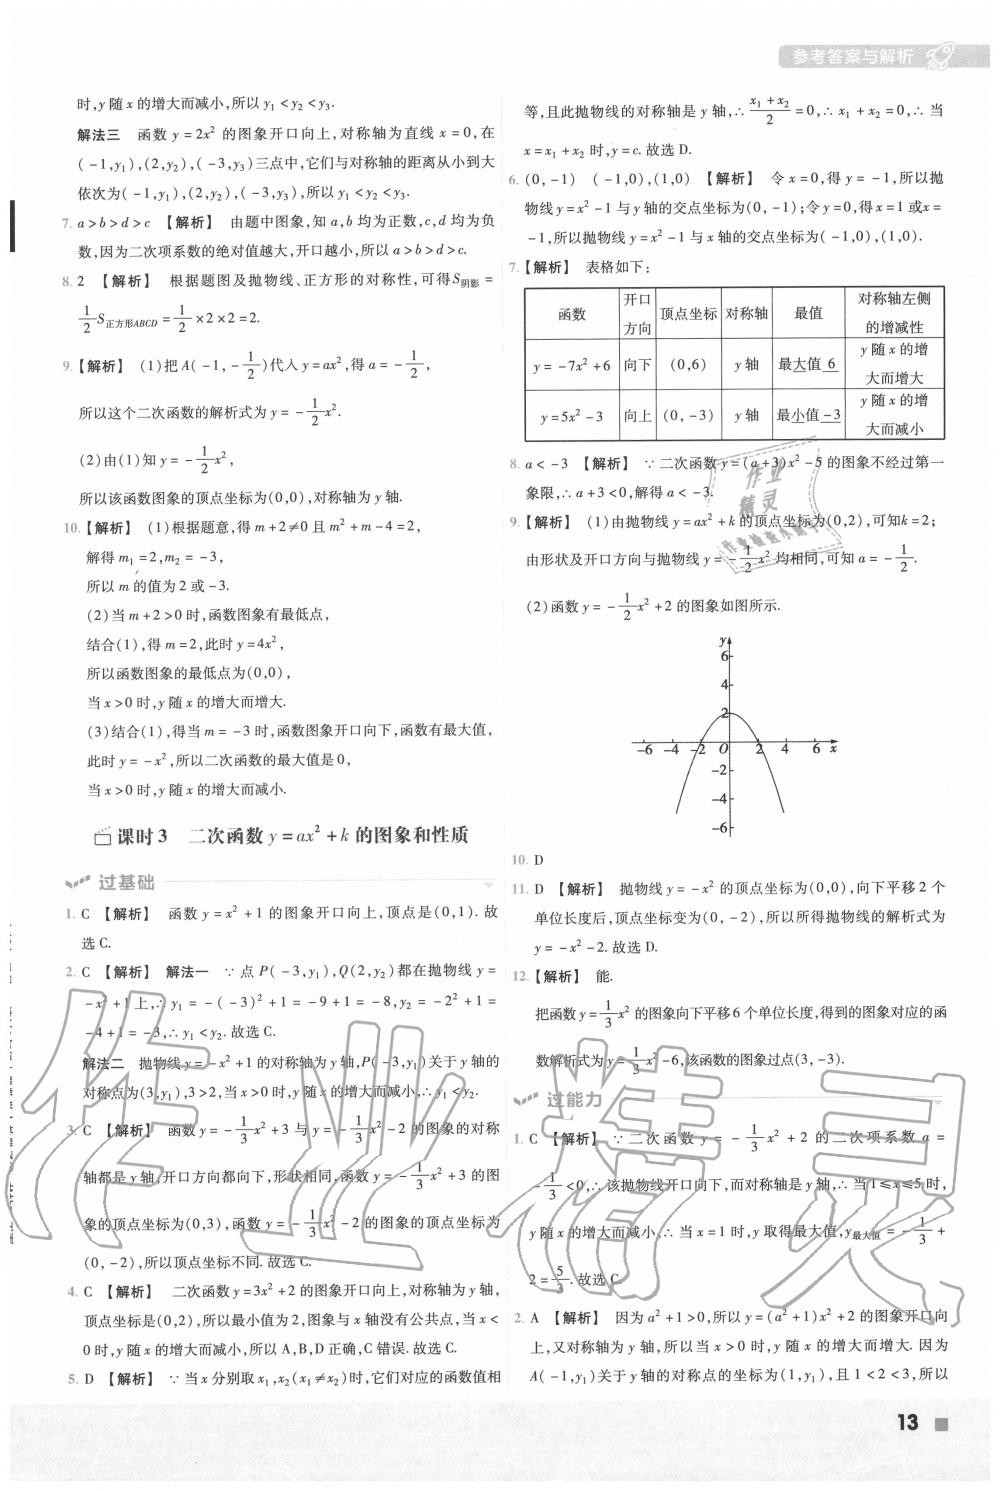 参考答案与解析
时,y 随 x 的增大而减小,所以 y₁<y₂<y₃.
解法三　函数 y=2x² 的图象开口向上,对称轴为直线 x=0,在
(-1,y₁),(2,y₂),(-3,y₃)三点中,它们与对称轴的距离从小到大
依次为(-1,y₁),(2,y₂),(-3,y₃),所以 y₁<y₂<y₃.
7. a>b>d>c 【解析】 由题中图象,知 a,b 均为正数,c,d 均为负
数,因为二次项系数的绝对值越大,开口越小,所以 a>b>d>c.
8. 2 【解析】 根据题图及抛物线、正方形的对称性,可得S阴影=
1/2 S正方形ABCD=1/2×2×2=2.
9.【解析】 (1)把 A(-1,-1/2)代入 y=ax²,得 a=-1/2,
所以这个二次函数的解析式为 y=-1/2x².
(2)由(1)知 y=-1/2x²,
所以该函数图象的顶点坐标为(0,0),对称轴为 y 轴.
10.【解析】 (1)根据题意,得 m+2≠0 且 m²+m-4=2,
解得 m₁=2,m₂=-3,
所以 m 的值为 2 或-3.
(2)当 m+2>0 时,函数图象有最低点,
结合(1),得 m=2,此时 y=4x²,
所以函数图象的最低点为(0,0),
当 x>0 时,y 随 x 的增大而增大.
(3)结合(1),得当 m=-3 时,函数图象开口向下,函数有最大值,
此时 y=-x²,所以二次函数的最大值是 0,
当 x>0 时,y 随 x 的增大而减小.
课时 3　二次函数 y=ax²+k 的图象和性质
过基础
1. C 【解析】 函数 y=x²+1 的图象开口向上,顶点是(0,1). 故
选 C.
2. C 【解析】 解法一 ∵点 P(-3,y₁),Q(2,y₂)都在抛物线 y=
-x²+1 上,∴y₁=-(-3)²+1=-9+1=-8,y₂=-2²+1=
-4+1=-3,∴y₁<y₂. 故选 C.
解法二 抛物线 y=-x²+1 的对称轴为 y 轴,P(-3,y₁)关于 y 轴的
对称点为(3,y₁),3>2,当 x>0 时,y 随 x 的增大而减小,∴y₁<y₂.
3. C 【解析】 函数 y=-1/3x²+3 与 y=-1/3x²-2 的图象的对称
轴都是 y 轴,开口方向都向下,形状相同,函数 y=-1/3x²+3 的图
象的顶点坐标为(0,3),函数 y=-1/3x²-2 的图象的顶点坐标为
(0,-2),所以顶点坐标不同. 故选 C.
4. C 【解析】 二次函数 y=3x²+2 的图象开口向上,对称轴为 y 轴,
顶点坐标是(0,2),所以最小值为 2,图象与 x 轴没有公共点,当 x<
0 时,y 随 x 的增大而减小,所以 A,B,D 正确,C 错误. 故选 C.
5. D 【解析】 ∵当 x 分别取 x₁,x₂(x₁≠x₂)时,它们对应的函数值相
等,且此抛物线的对称轴是 y 轴,∴(x₁+x₂)/2=0,∴x₁+x₂=0,∴当
x=x₁+x₂ 时,y=c. 故选 D.
6. (0,-1) (-1,0),(1,0) 【解析】 令 x=0,得 y=-1,所以抛
物线 y=x²-1 与 y 轴的交点坐标为(0,-1);令 y=0,得 x=1 或x=
-1,所以抛物线 y=x²-1 与 x 轴的交点坐标为(-1,0),(1,0).
7.【解析】 表格如下:
函数 开口方向 顶点坐标 对称轴 最值 对称轴左侧的增减性
y=-7x²+6 向下 (0,6) y 轴 最大值 6 y 随 x 的增大而增大
y=5x²-3 向上 (0,-3) y 轴 最小值-3 y 随 x 的增大而减小
8. a<-3 【解析】 ∵二次函数 y=(a+3)x²-5 的图象不经过第一
象限,∴a+3<0,解得 a<-3.
9.【解析】 (1)由抛物线 y=ax²+k 的顶点坐标为(0,2),可知k=2;
由形状及开口方向与抛物线 y=-1/2x² 均相同,可知 a=-1/2.
(2)函数 y=-1/2x²+2 的图象如图所示.
y
6
4
2
-6 -4 -2 O 2 4 6 x
-2
-4
-6
10. D
11. D 【解析】 抛物线 y=-x² 的顶点坐标为(0,0),向下平移 2 个
单位长度后,顶点坐标变为(0,-2),所以所得抛物线的解析式为
y=-x²-2. 故选 D.
12.【解析】 能.
把函数 y=1/3x² 的图象向下平移 6 个单位长度,得到的图象对应的函
数解析式为 y=1/3x²-6,该函数的图象过点(3,-3).
过能力
1. C 【解析】 ∵二次函数 y=-1/3x²+2 的二次项系数 a=
-1/3<0,∴该抛物线开口向下,而对称轴是 y 轴,∴当 1≤x≤5 时,
y 随 x 的增大而减小,∴当 x=1 时,y 取得最大值,y最大值=-1/3+
2=5/3. 故选 C.
2. A 【解析】 因为 a²+1>0,所以 y=(a²+1)x²+2 的图象开口向
上,又对称轴为 y 轴,所以当 x>0 时,y 随 x 的增大而增大. 因为
A(-1,y₁)关于 y 轴的对称点的坐标为(1,y₁),且 1<2<3,所以
13
作业精灵
作业
精灵
作业检查小助手